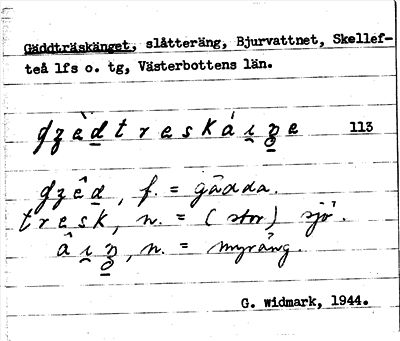 Gäddträskänget, slåtteräng, Bjurvattnet, Skellef-
teå lfs o. tg, Västerbottens län.
113
f. = gädda.
tresk, n. = (stor) sjö.
n. = myräng.
G. Widmark, 1944.